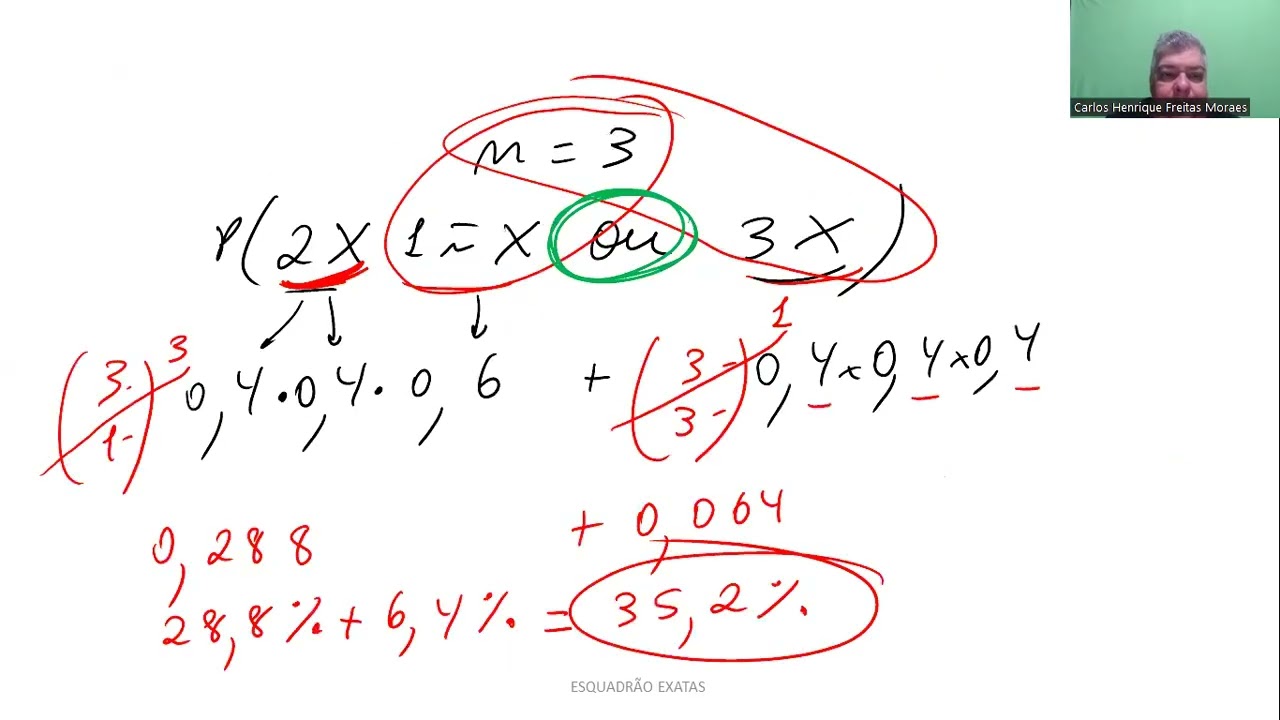 Carlos Henrique Freitas Moraes
n = 3
P(2X 1 ~ X ou 3X)
(3/1) 3 0,4 · 0,4 · 0,6 + (3/3) 1 0,4 x 0,4 x 0,4
0,288 + 0,064
28,8% + 6,4% = 35,2%
ESQUADRÃO EXATAS